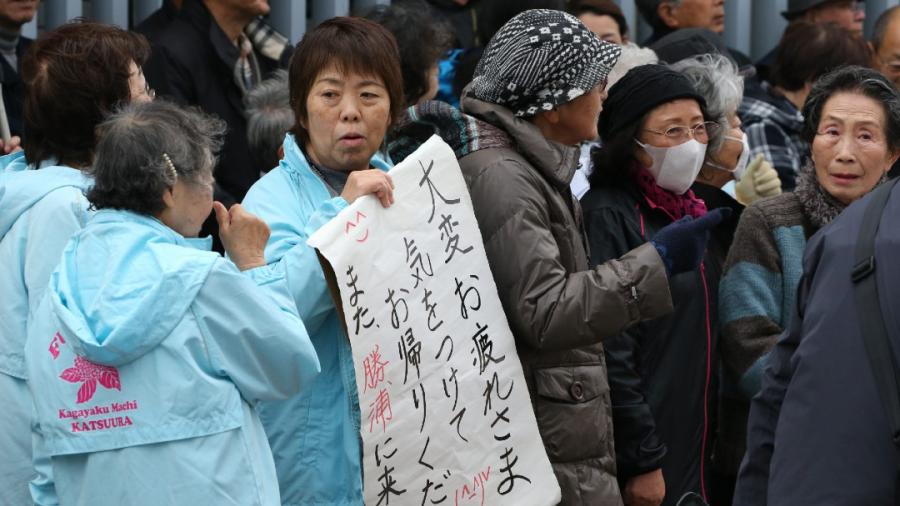 大変お疲れさま
気をつけて
お帰りくだ
また、勝浦に来
Kagayaku Machi
KATSUURA